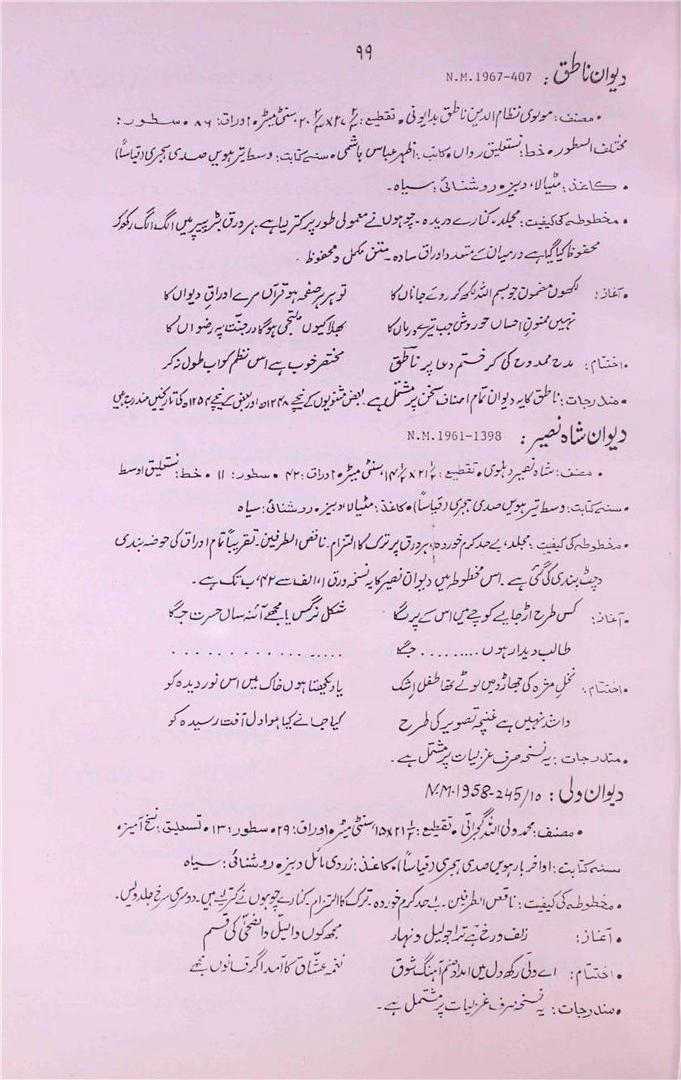 ۹۹
دیوان ناطق : N.M.1967-407
• مصنف : مولوی نظام الدین ناطق بدایونی • تقطیع : ۲۷x۲۰ سنٹی میٹر • اوراق : ۸۶ • سطور :
مختلف السطور • خط : نستعلیق رواں • کاتب : اظہر عباس ہاشمی • سنہ کتابت : وسط تیرہویں صدی ہجری (قیاساً)
• کاغذ : مٹیالا، دبیز • روشنائی : سیاہ ۔
• مخطوطہ کی کیفیت : مجلد، کنارے دریدہ ۔ چوہوں نے معمولی طور پر کتر لیا ہے ۔ ہر ورق بٹر پیپر میں الگ الگ رکھ کر
محفوظ کیا گیا ہے درمیان کے متعدد اوراق سادہ ۔ متن مکمل و محفوظ ۔
• آغاز : لکھوں مضمون جو بسم اللہ لکھ کر روئے جاناں کا تو ہر ہر صفحہ ہو قرآں مرے اوراقِ دیواں کا
نہیں ممنونِ احساں حور وش جب تیرے درباں کا بھلا کیوں ملتجی ہوگا درِ جنت پہ رضواں کا
• اختتام : مدح ممدوح کی کر ختم دعا پر ناطق مختصر خوب ہے اس نظم کو اب طول نہ کر
• مندرجات : ناطق کا یہ دیوان تمام اصناف سخن پر مشتمل ہے ۔ بعض مثنویوں کے نیچے ۱۲۴۸ھ اور بعض کے نیچے ۱۲۵۴ھ کی تاریخیں مندرج ہیں
دیوان شاہ نصیر : N.M.1961-1398
• مصنف : شاہ نصیر دہلوی • تقطیع : ۲۱ ۱/۲x۱۴ ۱/۲ سنٹی میٹر • اوراق : ۴۲ • سطور : ۱۱ • خط : نستعلیق اوسط
• سنہ کتابت : وسط تیرہویں صدی ہجری (قیاساً) • کاغذ : مٹیالا، دبیز • روشنائی : سیاہ
• مخطوطہ کی کیفیت : مجلد، بے حد کرم خوردہ، ہر ورق پر ترک کا التزام ۔ ناقص الطرفین ۔ تقریباً تمام اوراق کی حوضہ بندی
وچٹ بندی کی گئی ہے ۔ اس مخطوطہ میں دیوان نصیر کا یہ نسخہ ورق ۱، الف سے ۴۲، ب تک ہے ۔
• آغاز : کس طرح اڑ جایئے کوچے میں اس کے پر لگا شکل نرگس یا مجھے آئنہ ساں حسرت جگا
طالب دیدار ہوں ......... جگا ....................
• اختتام : نخلِ مژہ کی چھاڑ میں لوٹے تھا طفلِ اشک یا دیکھتا ہوں خاک میں اس نور دیدہ کو
واشد نہیں ہے غنچۂ تصویر کی طرح کیا جانے کیا ہوا دل آفت رسیدہ کو
• مندرجات : یہ نسخہ صرف غزلیات پر مشتمل ہے ۔
دیوان ولی : N.M.1958-245/10
• مصنف : محمد ولی اللہ گجراتی • تقطیع : ۲۱ ۱/۲x۱۵ سنٹی میٹر • اوراق : ۲۹ • سطور : ۱۳ • نستعلیق : نسخ آمیز •
سنہ کتابت : اواخر بارہویں صدی ہجری (قیاساً) • کاغذ : زردی مائل دبیز • روشنائی : سیاہ
• مخطوطہ کی کیفیت : ناقص الطرفین ۔ بے حد کرم خوردہ ۔ ترک کا التزام ۔ کنارے چوہوں نے کترے ہیں ۔ دوسری سرخ جلد ویس ۔
• آغاز : زلف و رخ ہے ترا جو لیل و نہار مجھ کوں واللیل والضحیٰ کی قسم
• اختتام : اے ولی رکھ دل میں آہنگ شوق نغمۂ عشّاق کا قانوں مجھے
• مندرجات : یہ نسخہ صرف غزلیات پر مشتمل ہے ۔